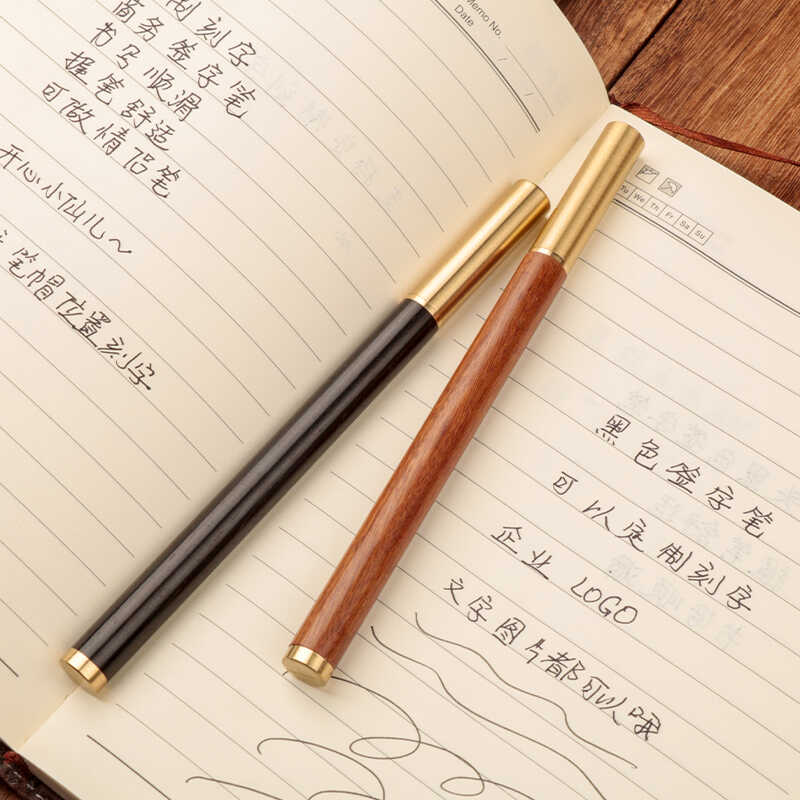 制刻字
商务签字笔
书写顺滑
握笔舒适
可做情侣笔
开心小仙儿~
笔帽位置刻字
Memo No.
Date / /
Tu We Th Fr Sa Su
黑色签字笔
可以定制刻字
企业 LOGO
文字图片都可以哦